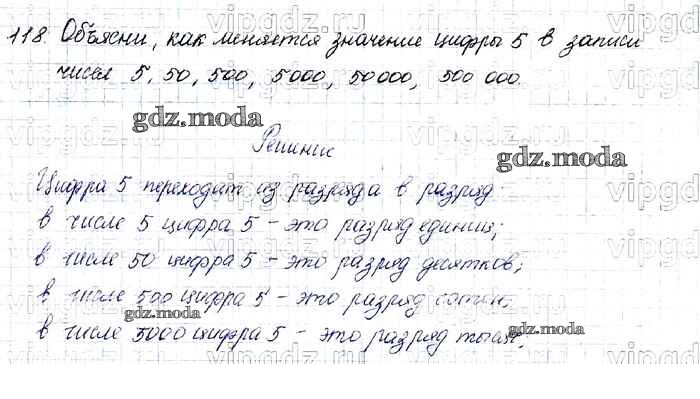 118. Объясни, как меняется значение цифры 5 в записи
чисел 5, 50, 500, 5000, 50000, 500 000.
gdz.moda
Решение
gdz.moda
Цифра 5 переходит из разряда в разряд.
в числе 5 цифра 5 - это разряд единиц;
в числе 50 цифра 5 - это разряд десятков;
в числе 500 цифра 5 - это разряд сотен;
gdz.moda
gdz.moda
в числе 5000 цифра 5 - это разряд тысяч.